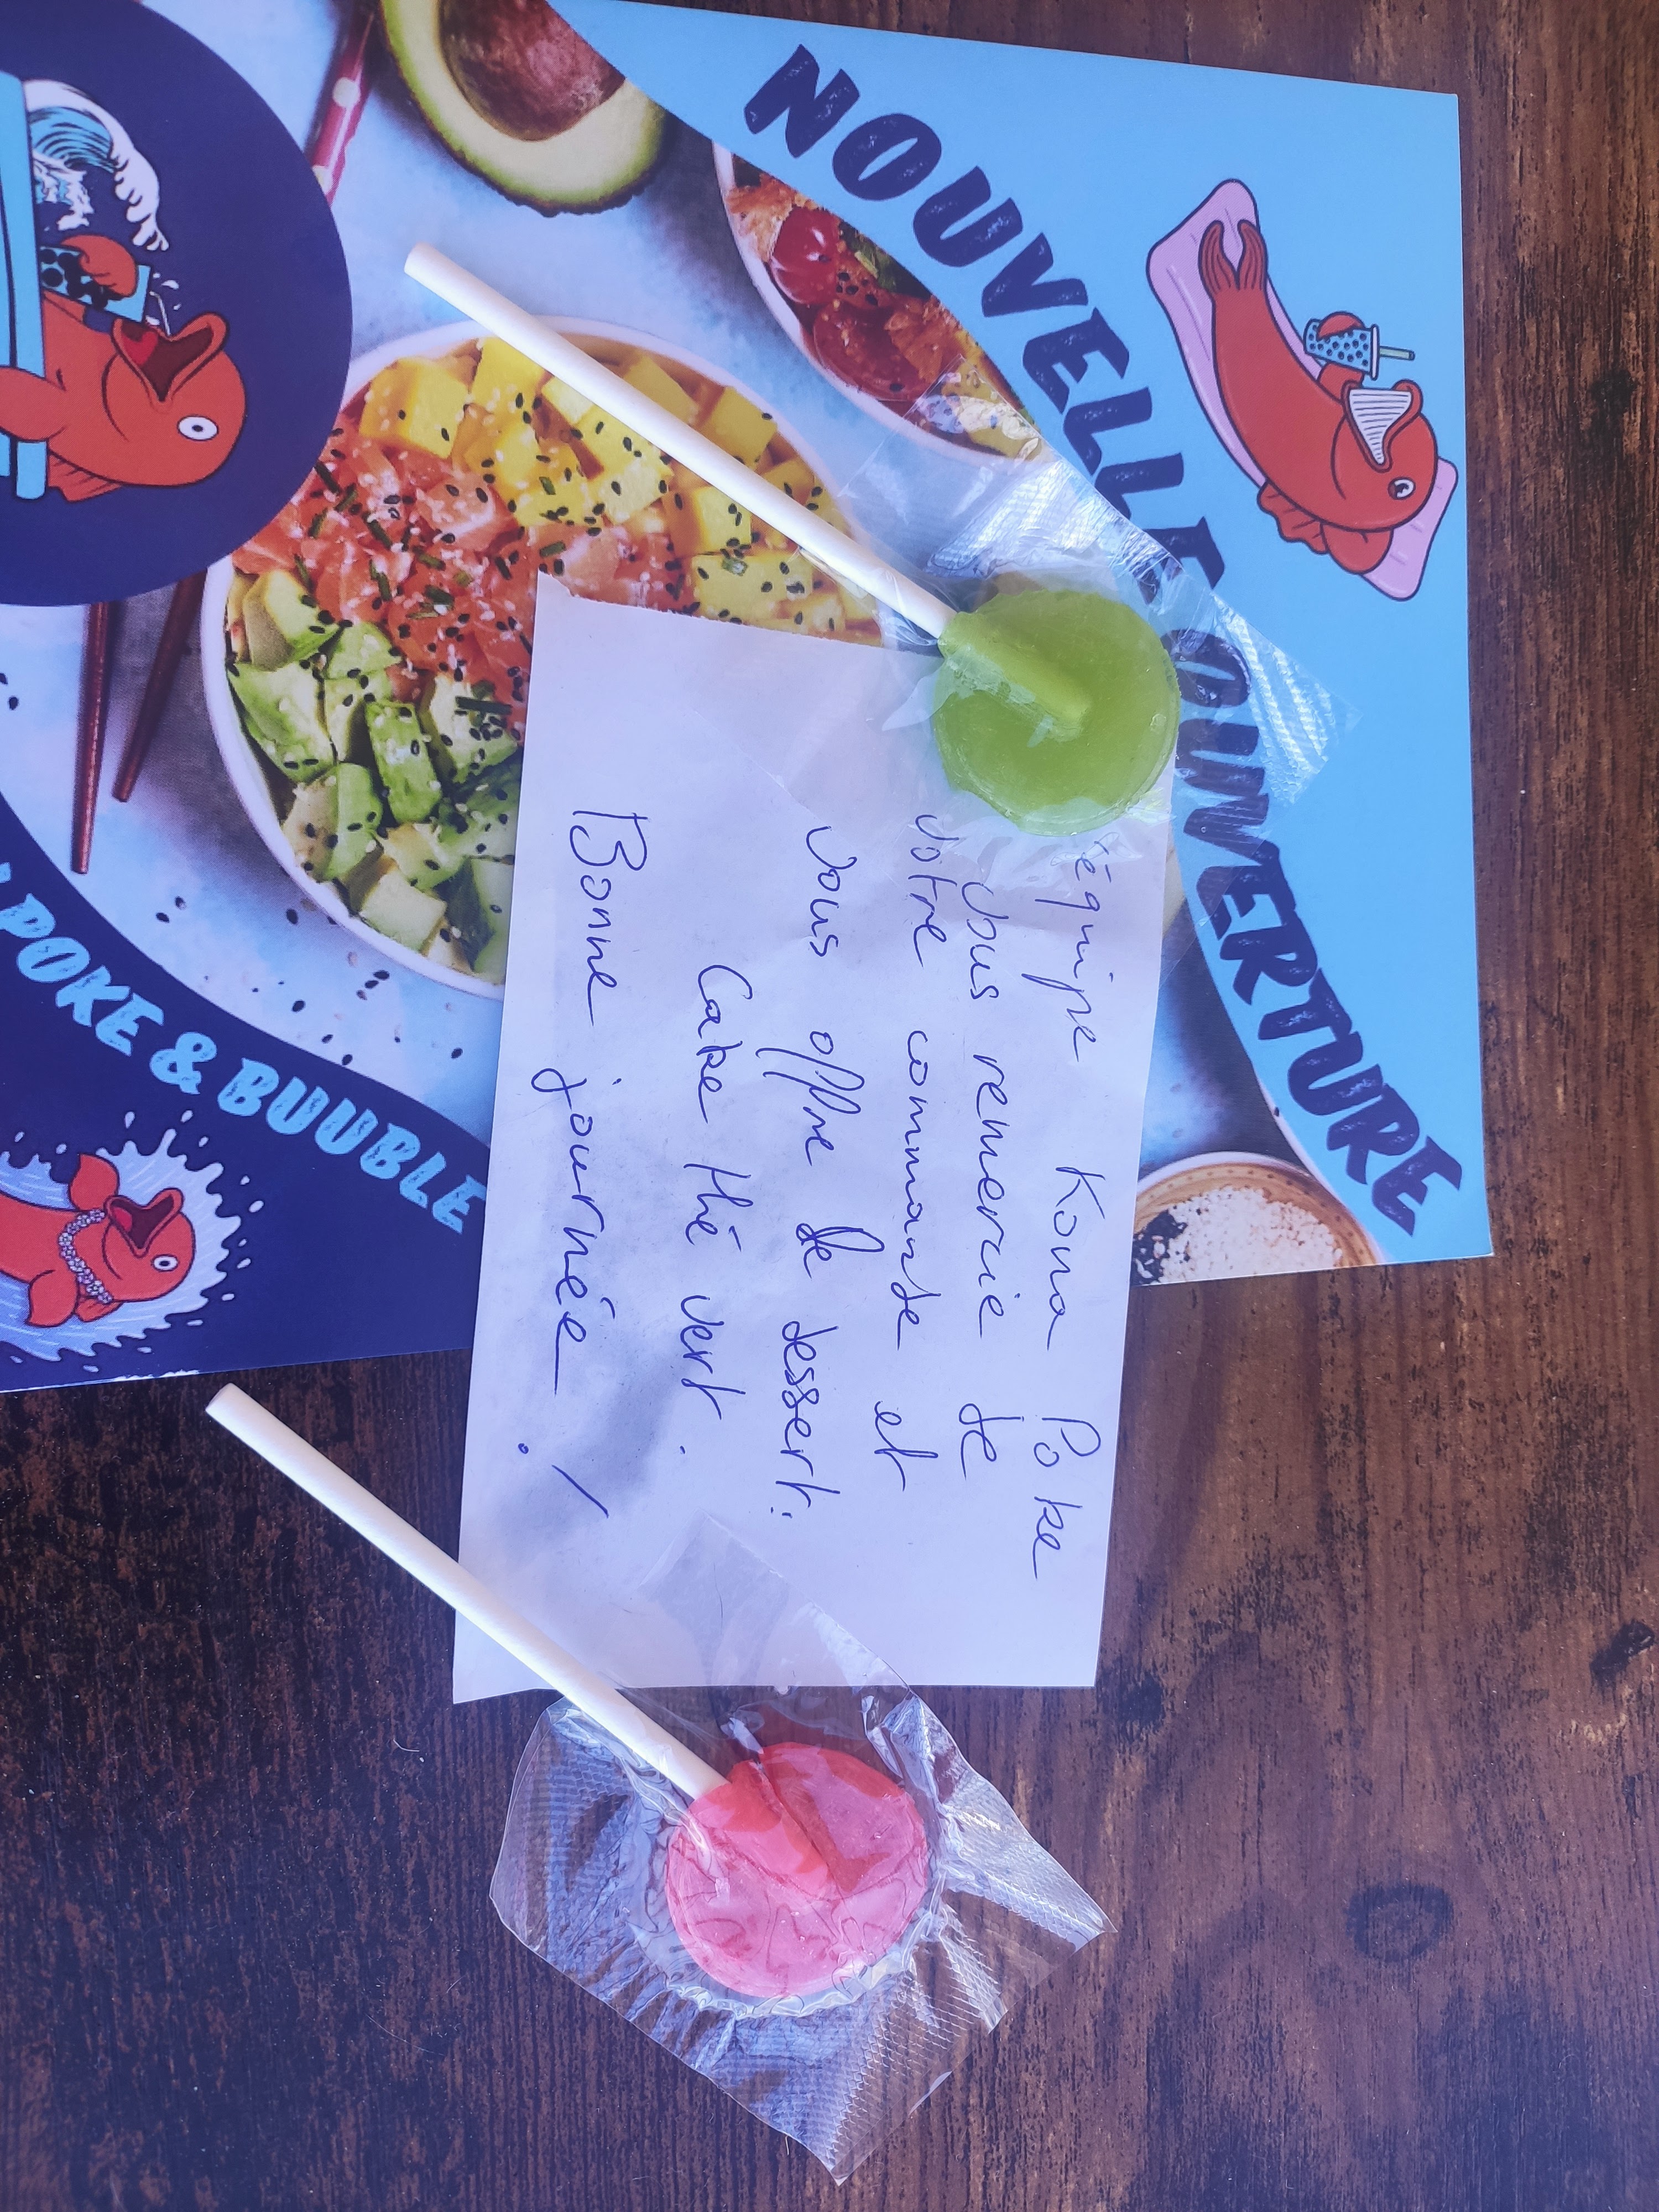 NOUVELLE OUVERTURE
POKE & BUUBLE
équipe Kona Poke
vous remercie de
votre commande et
vous offre le dessert:
Cake thé vert.
Bonne journée !